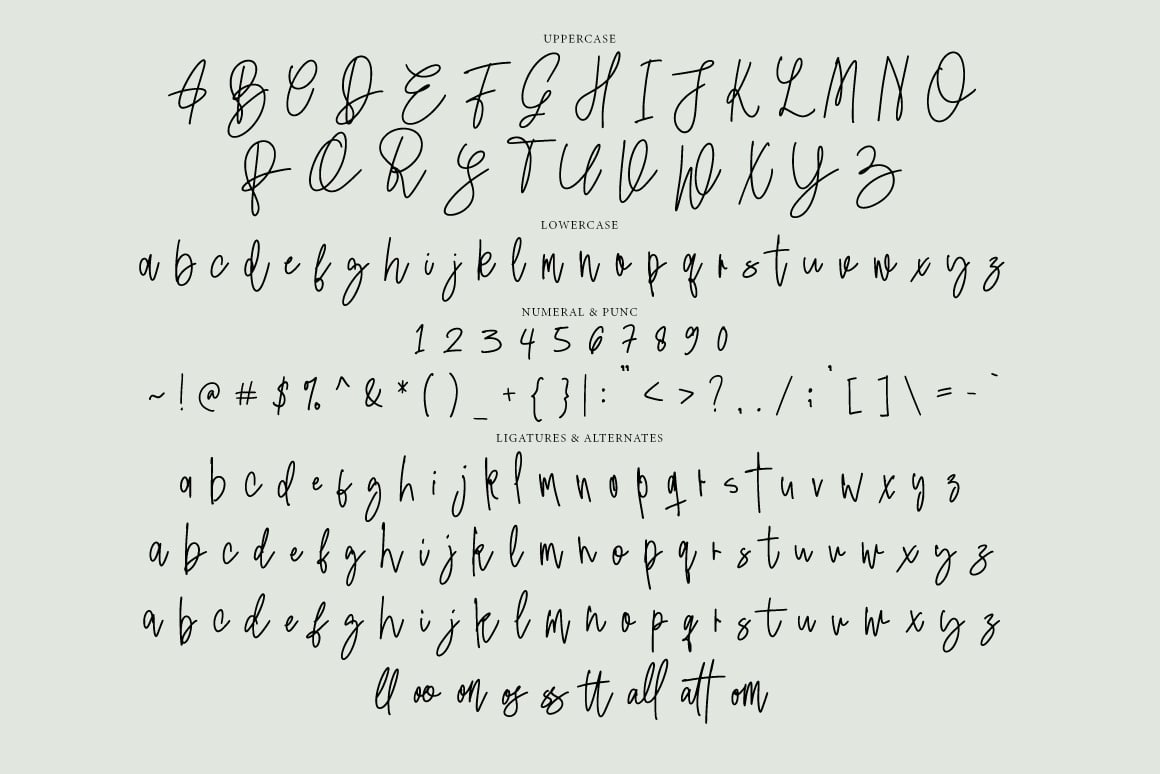 UPPERCASE
A B C D E F G H I J K L M N O
P Q R S T U V W X Y Z
LOWERCASE
a b c d e f g h i j k l m n o p q r s t u v w x y z
NUMERAL & PUNC
1 2 3 4 5 6 7 8 9 0
~ ! @ # $ % ^ & * ( ) _ + { } | : " < > ? , . . / ; ' [ ] \ = - `
LIGATURES & ALTERNATES
a b c d e f g h i j k l m n o p q r s t u v w x y z
a b c d e f g h i j k l m n o p q r s t u v w x y z
a b c d e f g h i j k l m n o p q r s t u v w x y z
ll oo on os ss tt all att om